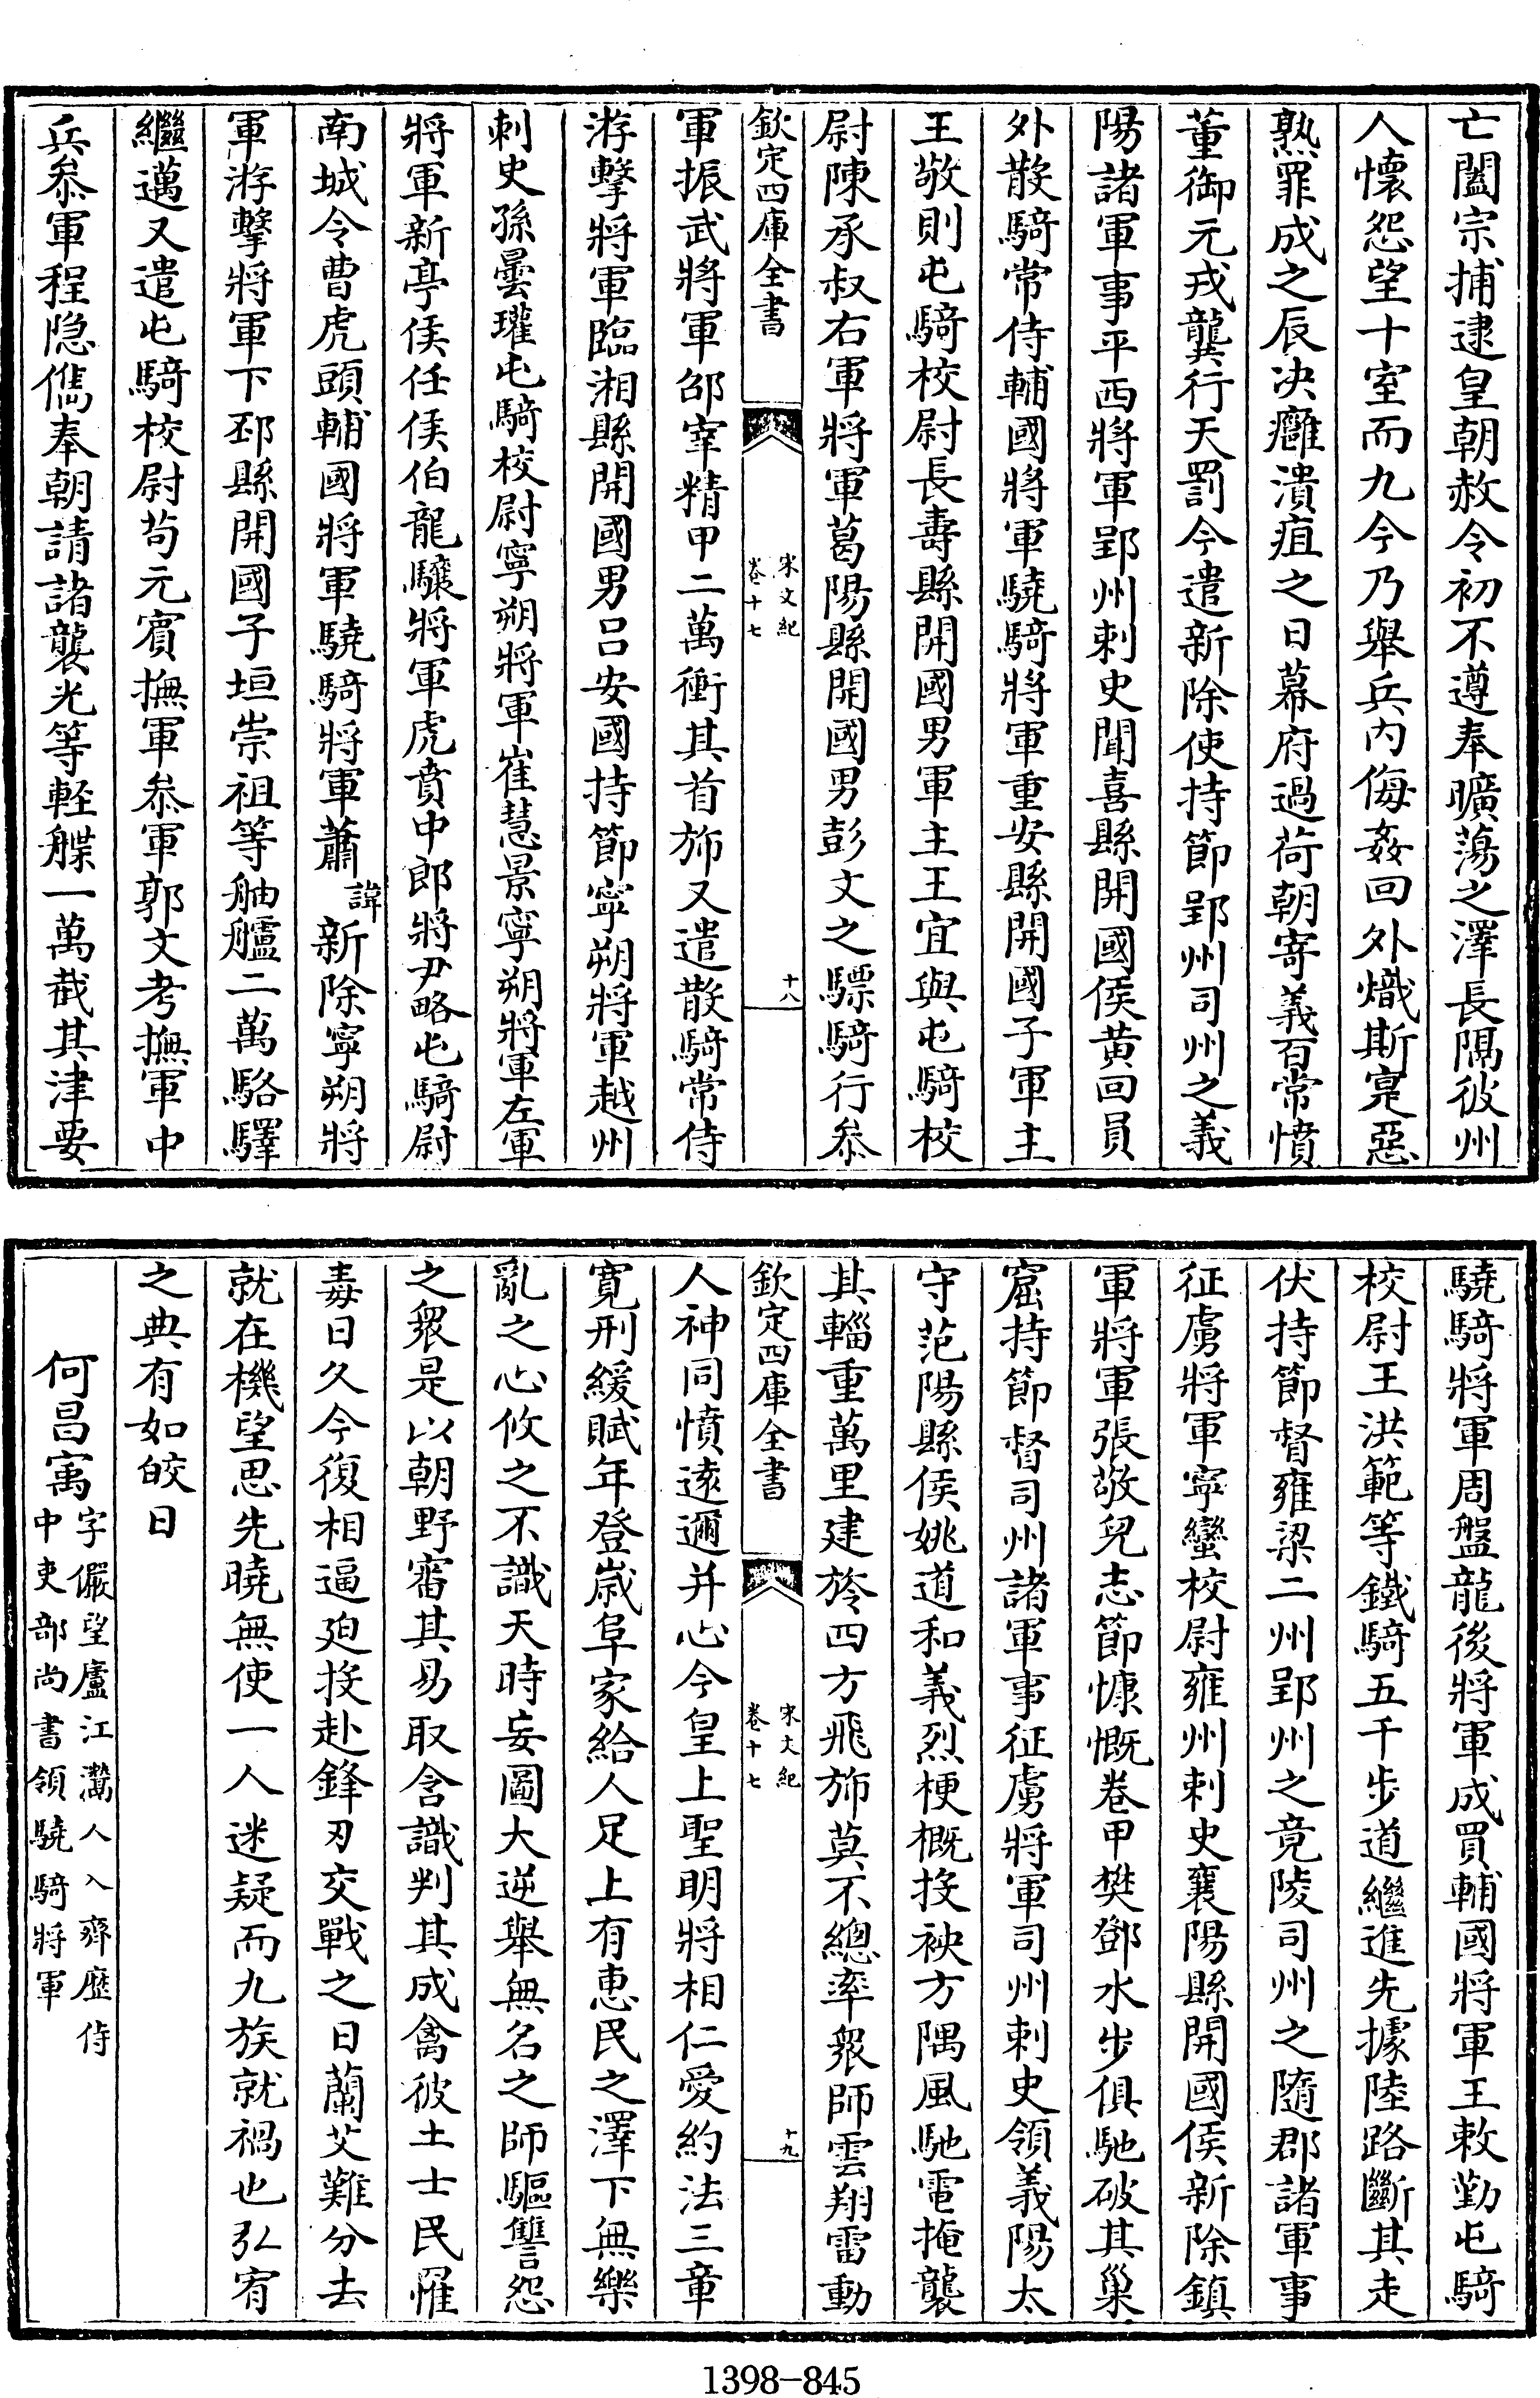 亡闔宗捕逮皇朝赦令初不遵奉曠蕩之澤長隔彼州
人懷怨望十室而九今乃舉兵内侮姦回外熾斯寔惡
熟罪成之辰决癰潰疽之日幕府過荷朝寄義百常憤
董御元戎龔行天罰今遣新除使持節郢州司州之義
陽諸軍事平西將軍郢州刺史聞喜縣開國侯黄回員
外散騎常侍輔國將軍驍騎將軍重安縣開國子軍主
王敬則屯騎校尉長壽縣開國男軍主王宜與屯騎校
尉陳承叔右軍將軍葛陽縣開國男彭文之驃騎行叅
欽定四庫全書
宋文紀
卷十七
十八
軍振武將軍邰宰精甲二萬衝其首斾又遣散騎常侍
游擊將軍臨湘縣開國男吕安國持節寧朔將軍越州
刺史孫曇瓘屯騎校尉寧朔將軍崔慧景寧朔將軍左軍
將軍新亭侯任侯伯龍驤將軍虎賁中郎將尹略屯騎尉
南城令曹虎頭輔國將軍驍騎將軍蕭諱新除寧朔將
軍游擊將軍下邳縣開國子垣崇祖等舳艫二萬駱驛
繼邁又遣屯騎校尉茍元賓撫軍叅軍郭文考撫軍中
兵叅軍程隐儁奉朝請諸襲光等輕艓一萬截其津要
驍騎將軍周盤龍後將軍成買輔國將軍王敕勤屯騎
校尉王洪範等鐵騎五千步道繼進先據陸路斷其走
伏持節督雍梁二州郢州之竟陵司州之隨郡諸軍事
征虜將軍寧蠻校尉雍州刺史襄陽縣開國侯新除鎮
軍將軍張敬兒志節慷慨卷甲樊鄧水步俱馳破其巢
窟持節督司州諸軍事征虜將軍司州刺史領義陽太
守范陽縣侯姚道和義烈梗概投袂方隅風馳電掩襲
其輜重萬里建旍四方飛斾莫不總率衆師雲翔雷動
欽定四庫全書
宋文紀
卷十七
十九
人神同憤遠邇并心今皇上聖明將相仁愛約法三章
寛刑緩賦年登歳阜家給人足上有惠民之澤下無樂
亂之心攸之不識天時妄圖大逆舉無名之師驅讐怨
之衆是以朝野審其易取含識判其成禽彼土士民罹
毒日久今復相逼廹投赴鋒刃交戰之日蘭艾難分去
就在機望思先曉無使一人迷疑而九族就禍也弘宥
之典有如皎日
何昌㝢字儼望廬江灊人入齊歴侍
中吏部尚書領驍騎將軍
1398-845